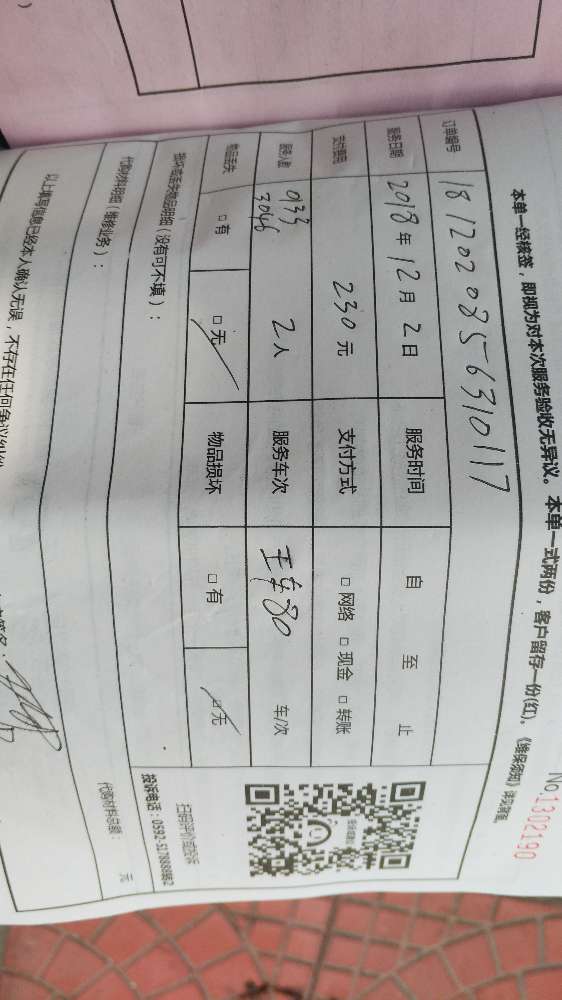 No.1302190
本单一经核签，即视为对本次服务验收无异议。本单一式两份，客户留存一份(红)。《维保须知》详见背面。
订单编号 1812020856310117
服务日期 2018年12月2日 服务时间 自 至 止
支付费用 230元 支付方式 □网络 □现金 □转账
服务人数 0133 3046 2人 服务车次 80 车/次
物品丢失 □有 □无 物品损坏 □有 □无
损坏或丢失物品明细（没有可不填）：
扫码评价或投诉
投诉电话：0592-5178888转2
代购材料明细（维修业务）：
代购材料总额： 元
以上填写信息已经本人确认无误，不存在任何争议纠纷